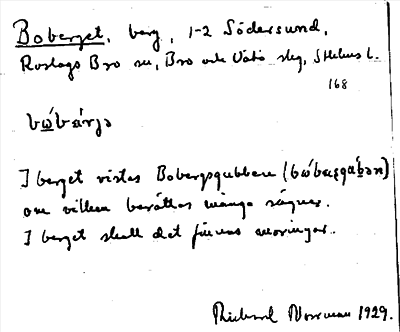 Boberget, berg, 1-2 Södersund,
Roslags Bro sn, Bro och Vätö skg, Sthlms l.
168
bὼbærjə
I berget vistas Bobergsgubben (
om vilken berättas många sägner.
I berget skall det finnas
Richard Norrman 1929.